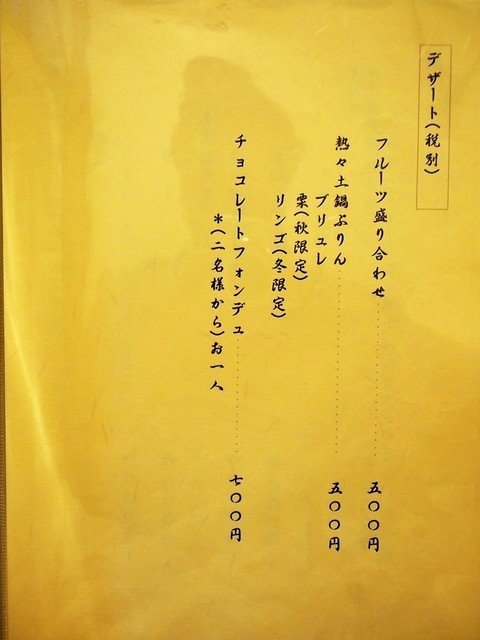 デザート(税別)
フルーツ盛り合わせ…………五〇〇円
熱々土鍋ぷりん…………五〇〇円
ブリュレ
栗(秋限定)
リンゴ(冬限定)
チョコレートフォンデュ…………七〇〇円
*(二名様から)お一人